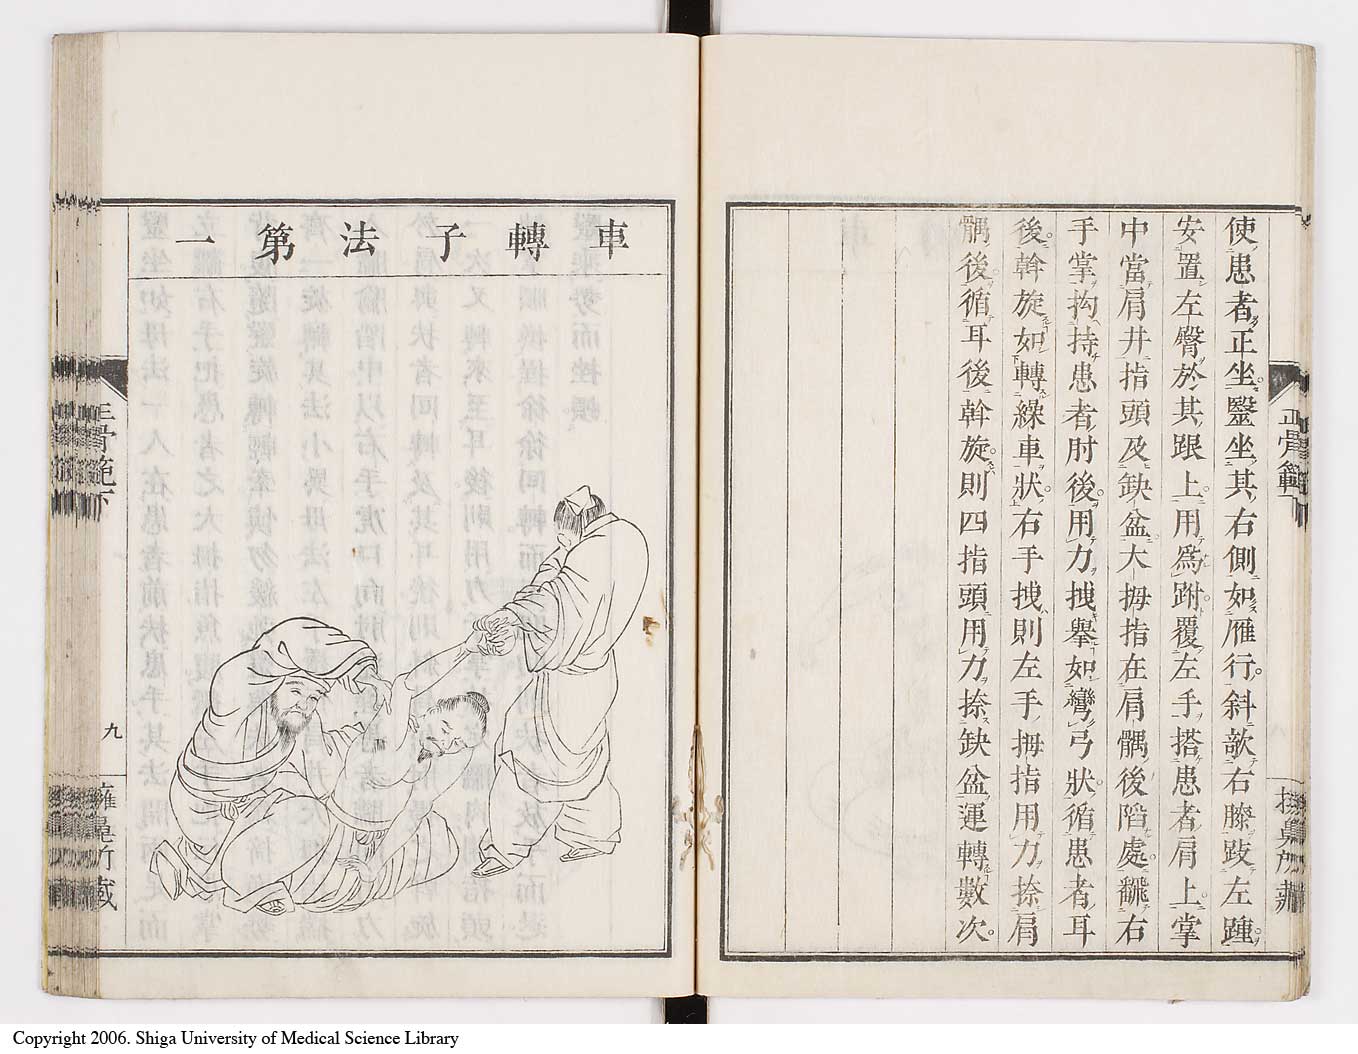 使患者正坐。毉坐其右側如雁行。斜欹右膝跂左踵。
安置左臀於其跟上。用爲跗。覆左手搭患者肩上。掌
中當肩井指頭及缺盆。大拇指在肩髃後陷處。飜右
手掌拘持患者肘後。用力拽舉如彎弓狀。循患者耳
後。幹旋如轉繰車狀。右手拽則左手拇指用力捺肩
髃後。循耳後幹旋。則四指頭用力捺缺盆運轉數次。
正骨範
車轉子法第一
正骨範下
九
Copyright 2006. Shiga University of Medical Science Library